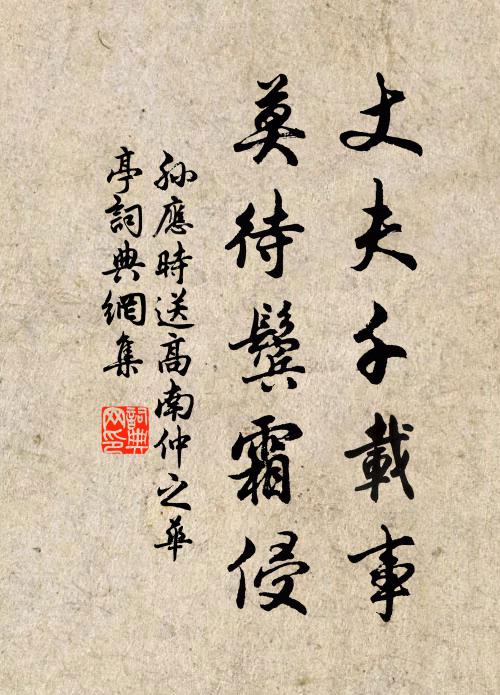 丈夫千載事
莫待鬢霜侵
孫應時送高南仲之華
亭詞典網集
詞典
网印